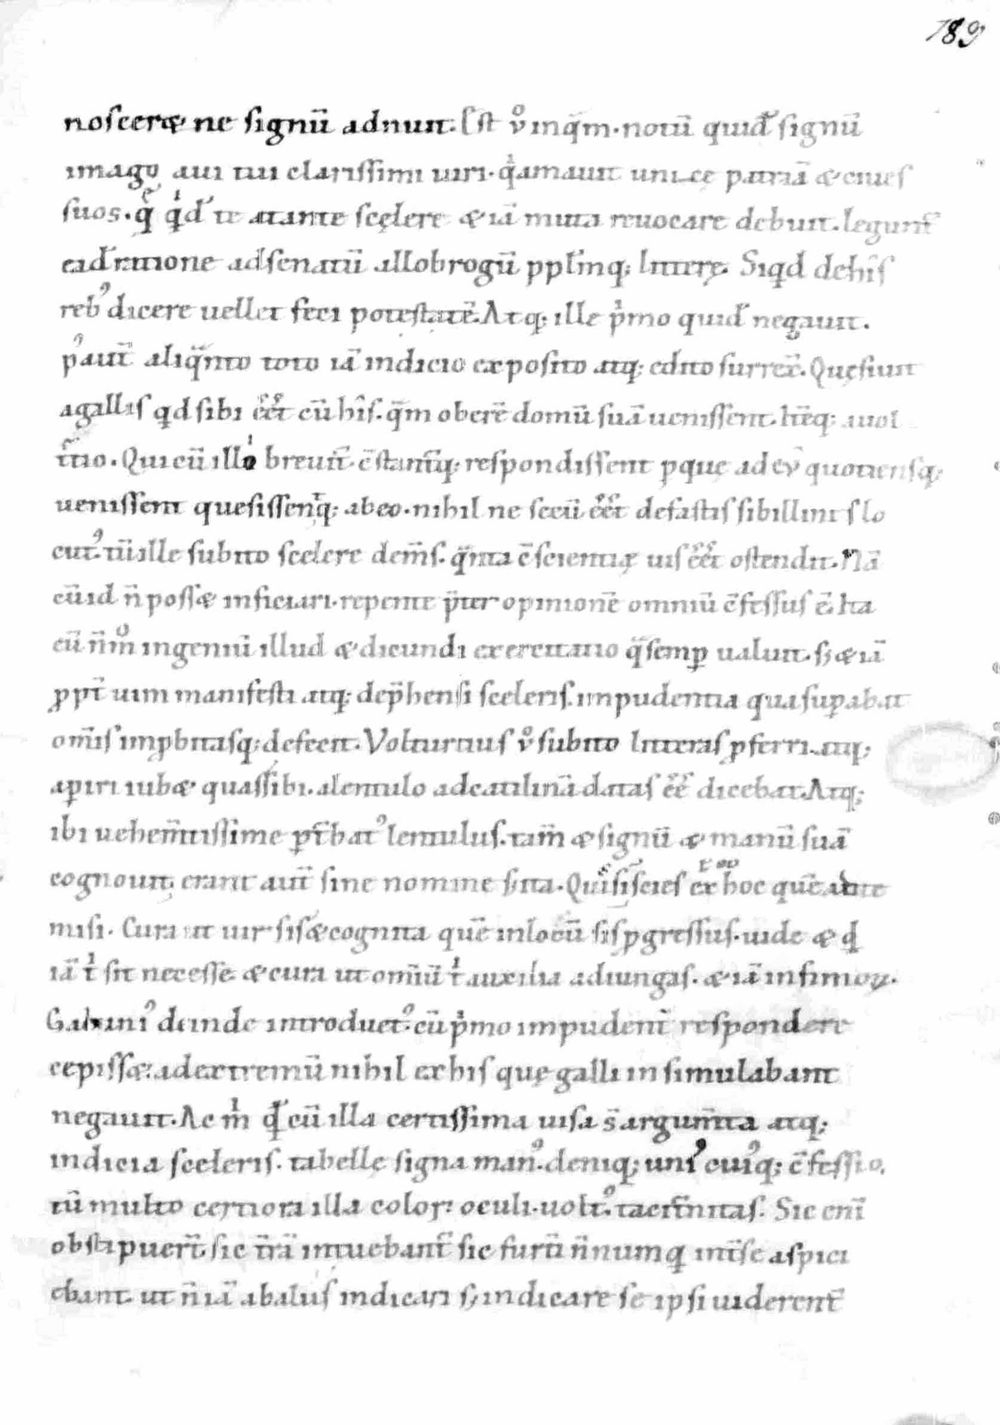 189
noscer& ne signū adnuit. Est v̊ inq̄m. notū quid̄ signū
imago aui tui clarissimi uiri. q̍ amauit unice patriā & ciues
suos. q̄ q̍d̄ te atante scęlere & iā muta reuocare debuit. legunt̄
ead̄ ratione adsenatū allobrogū pplīnq; litterę. Siqd dehīs
reb᾽ dicere uellet feci potestatē. Atq; ille p̍mo quid̄ negauit.
p᾽ aut̄ aliq̄nto toto iā indicio exposito atq; edito surrex̄. Quęsiuit
agallis qd sibi eēt cū hīs. q̄m obrē domū suā uenissent. Itēq; auol
t̄tio. Qui cū illo breuit̄ c̄stant̄q; respondissent p que ad eū quotiensq;
uenissent quesissentq; abeo. nihil ne secū eēt defastis sibillinis lo
cut᾽. tū ille subito scelere dem̄s. q̄nta c̄scientię uis eēt ostendit. Nā
cū id n̄ poss& inficiari. repente p̄ter opinionē omniū c̄fessus ē. Ita
eū n̄m̊ ingeniū illud & dicundi exercitatio q̄ semp ualuit. s; & iā
ppt̄ uim manifesti atq; dep̄hensi sceleris. impudentia qua supabat
om̄is impbitasq; defecit. Volturtius v̊ subito litteras pferri. atq;
apiri iub& quas sibi. alentulo adcatilinā datas eē dicebat. Atq;
ibi uehem̄tissime pt̄bat᾽ lentulus. tam̄ & signū & manū suā
cognouit. erant aut̄ sine nomine s; ita. Quis sim scies ex hoc quē ad te
misi. Cura ut uir sis & cognita quē inlocū sis pgressus. uide & qd
iā t̍ sit necesse. & cura ut omīū t̍ auxilia adiungas. & iā infimoꝝ.
Gabini᾽ deinde introduct᾽. cū p̍mo impudent̄ respondere
cepiss&. adextremū nihil exhis quę galli insimulabant
negauit. Ac m̍ qd̄ cū illa certissima uisa s̄ argum̄ta atq;
indicia sceleris. tabellę signa man᾽. deniq; uni᾽ cuiusq; c̄fessio.
tū multo certiora illa color. oculi. uolt᾽. taciturnitas. Sic enī
obstipuerāt. sic t̄rā intuebant̄ sic furtī n̄numq int̄ se aspici
ebant. ut n̄ iā abalīīs indicari s; indicare se ipsi uiderent̄